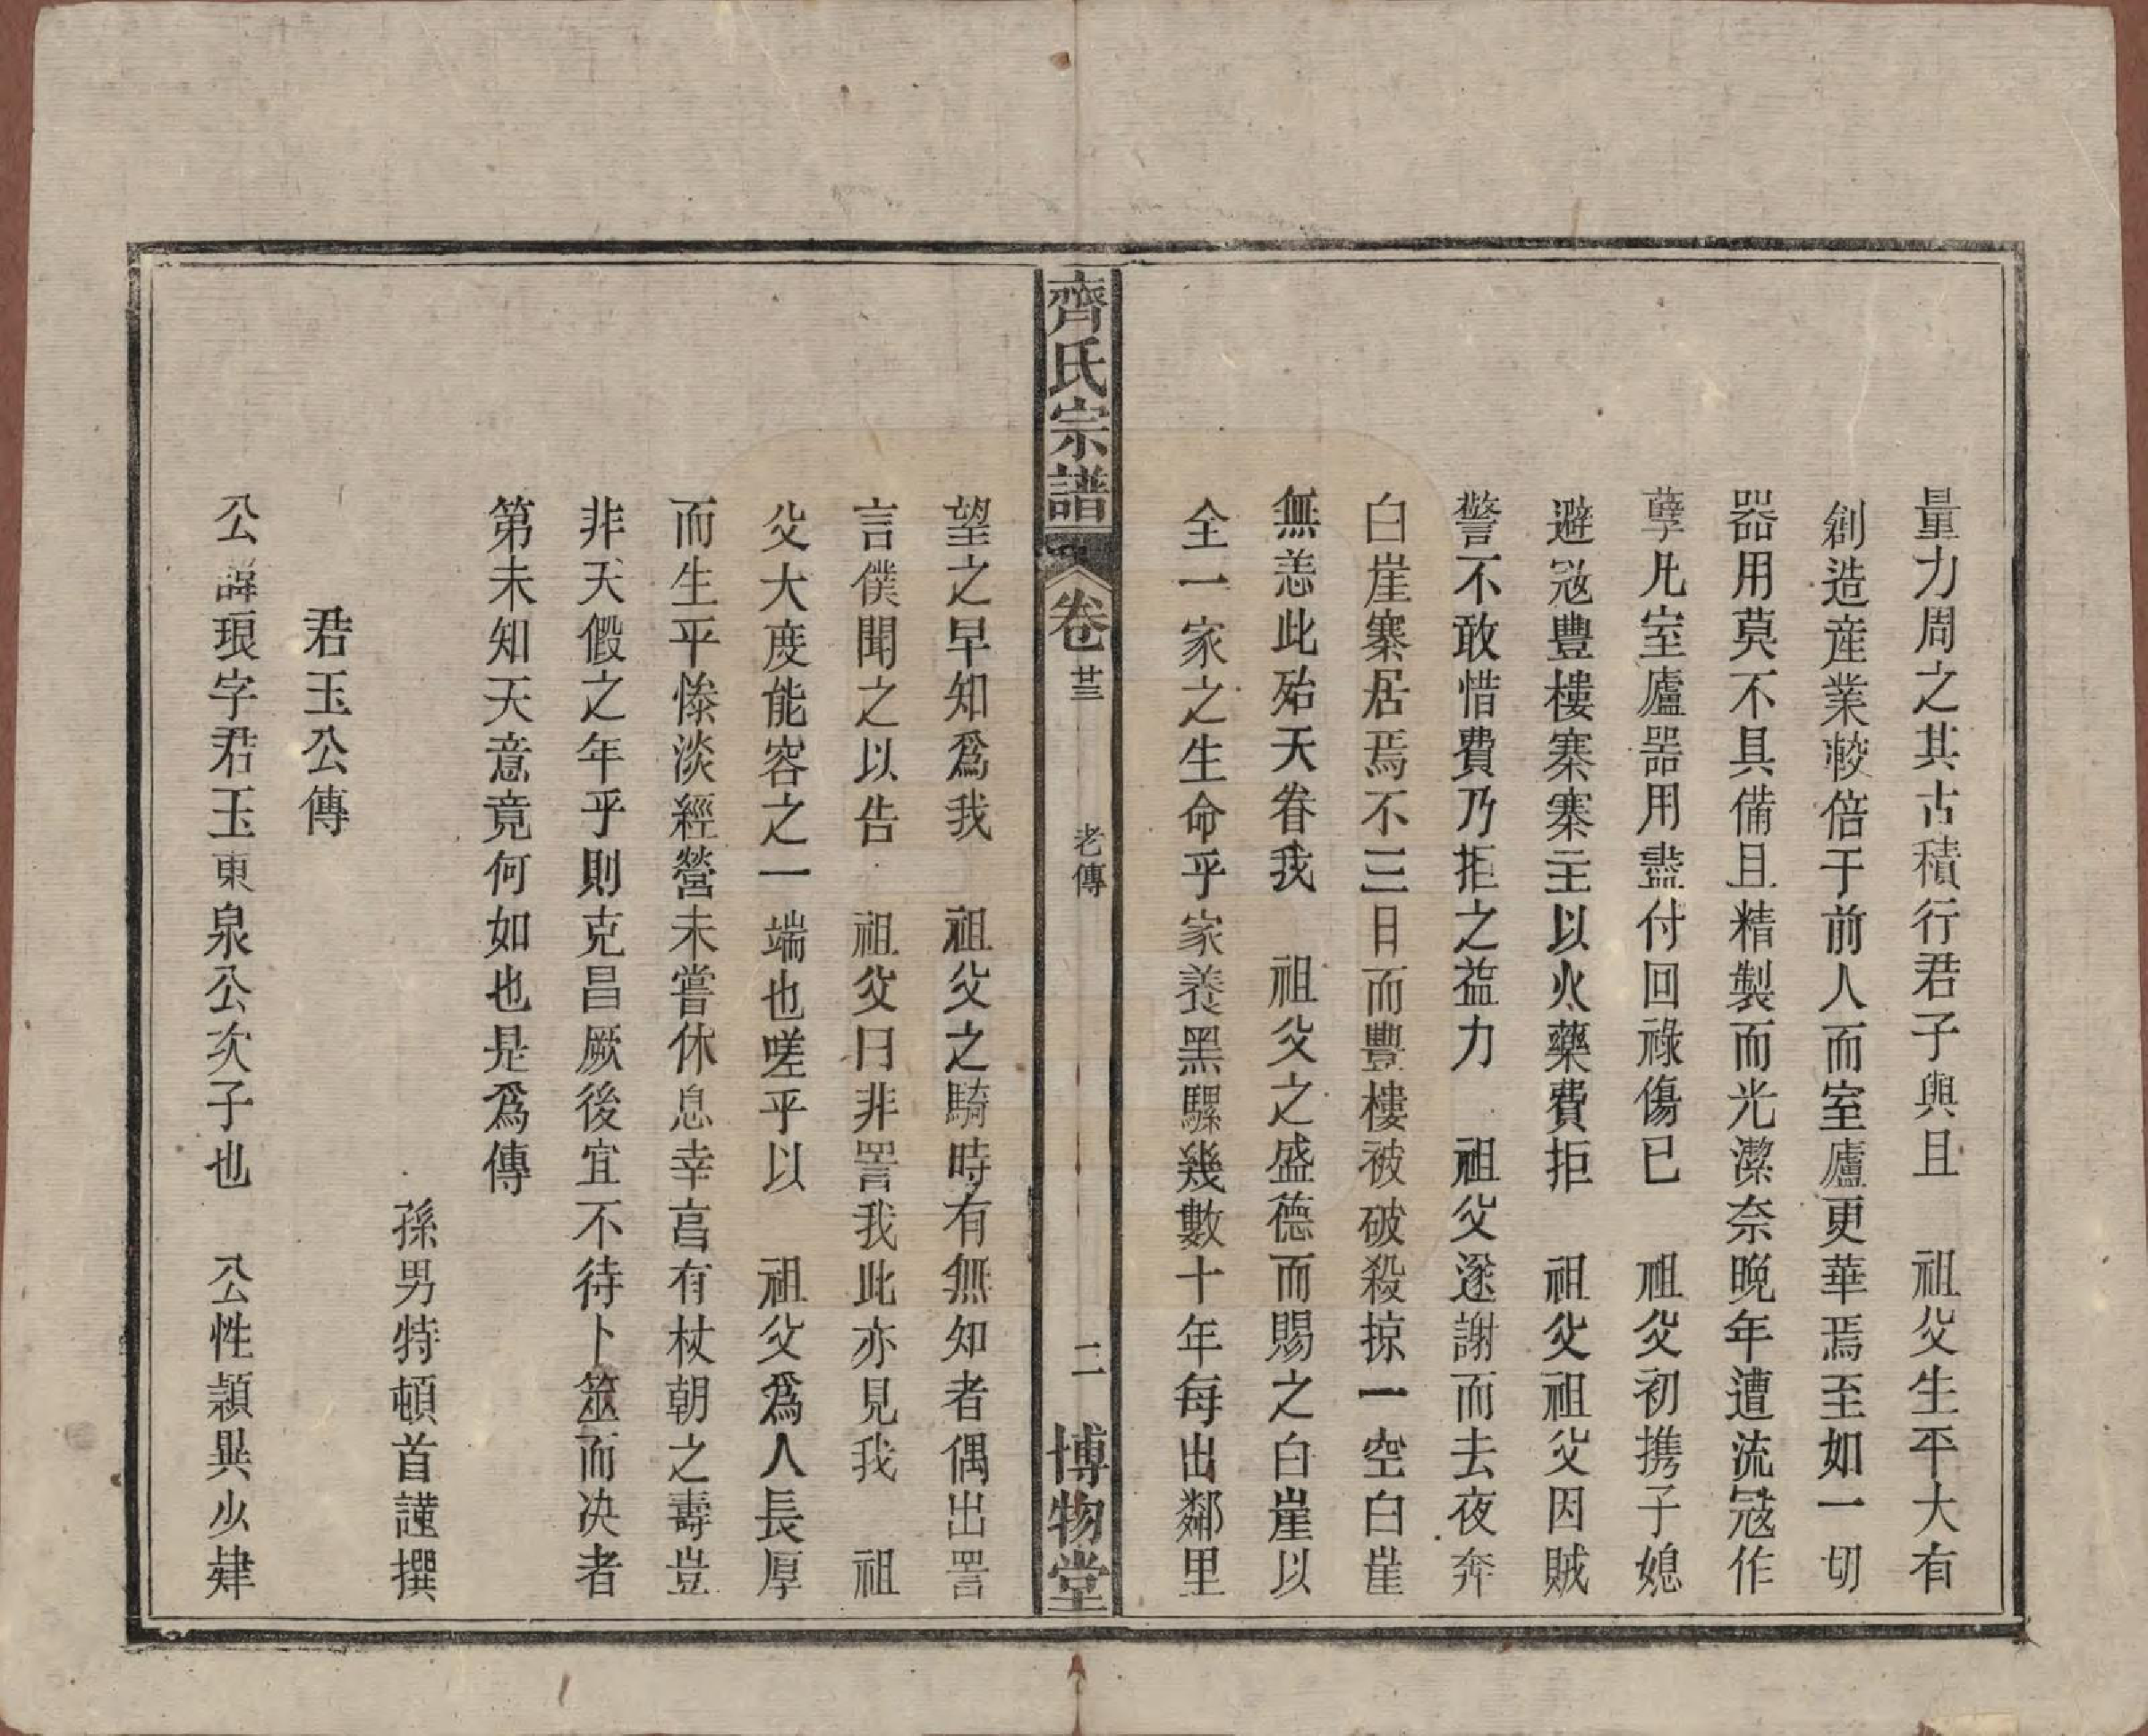 量力周之其古積行君子與且　祖父生平大有
創造産業較倍于前人而室廬更華焉至如一切
器用莫不具備且精製而光潔奈晚年遭流寇作
孽凡室廬器用盡付回祿傷已　祖父初携子媳
避寇豐樓寨寨主以火藥費拒　祖父祖父因賊
警不敢惜費乃拒之益力　祖父遂謝而去夜奔
白崖寨居焉不三日而豐樓被破殺掠一空白崖
無恙此殆天眷我　祖父之盛德而賜之白崖以
全一家之生命乎家養黑騾幾數十年每出鄰里
齊氏宗譜 卷廿三 老傳 二 博物堂
望之早知爲我　祖父之騎時有無知者偶出詈
言僕聞之以告　祖父曰非詈我此亦見我　祖
父大度能容之一端也嗟乎以　祖父爲人長厚
而生平慘淡經營未嘗休息幸亯有杖朝之壽豈
非天假之年乎則克昌厥後宜不待卜筮而决者
第未知天意竟何如也是爲傳
孫男特頓首謹撰
君玉公傳
公諱琅字君玉東泉公次子也　公性穎異少肄